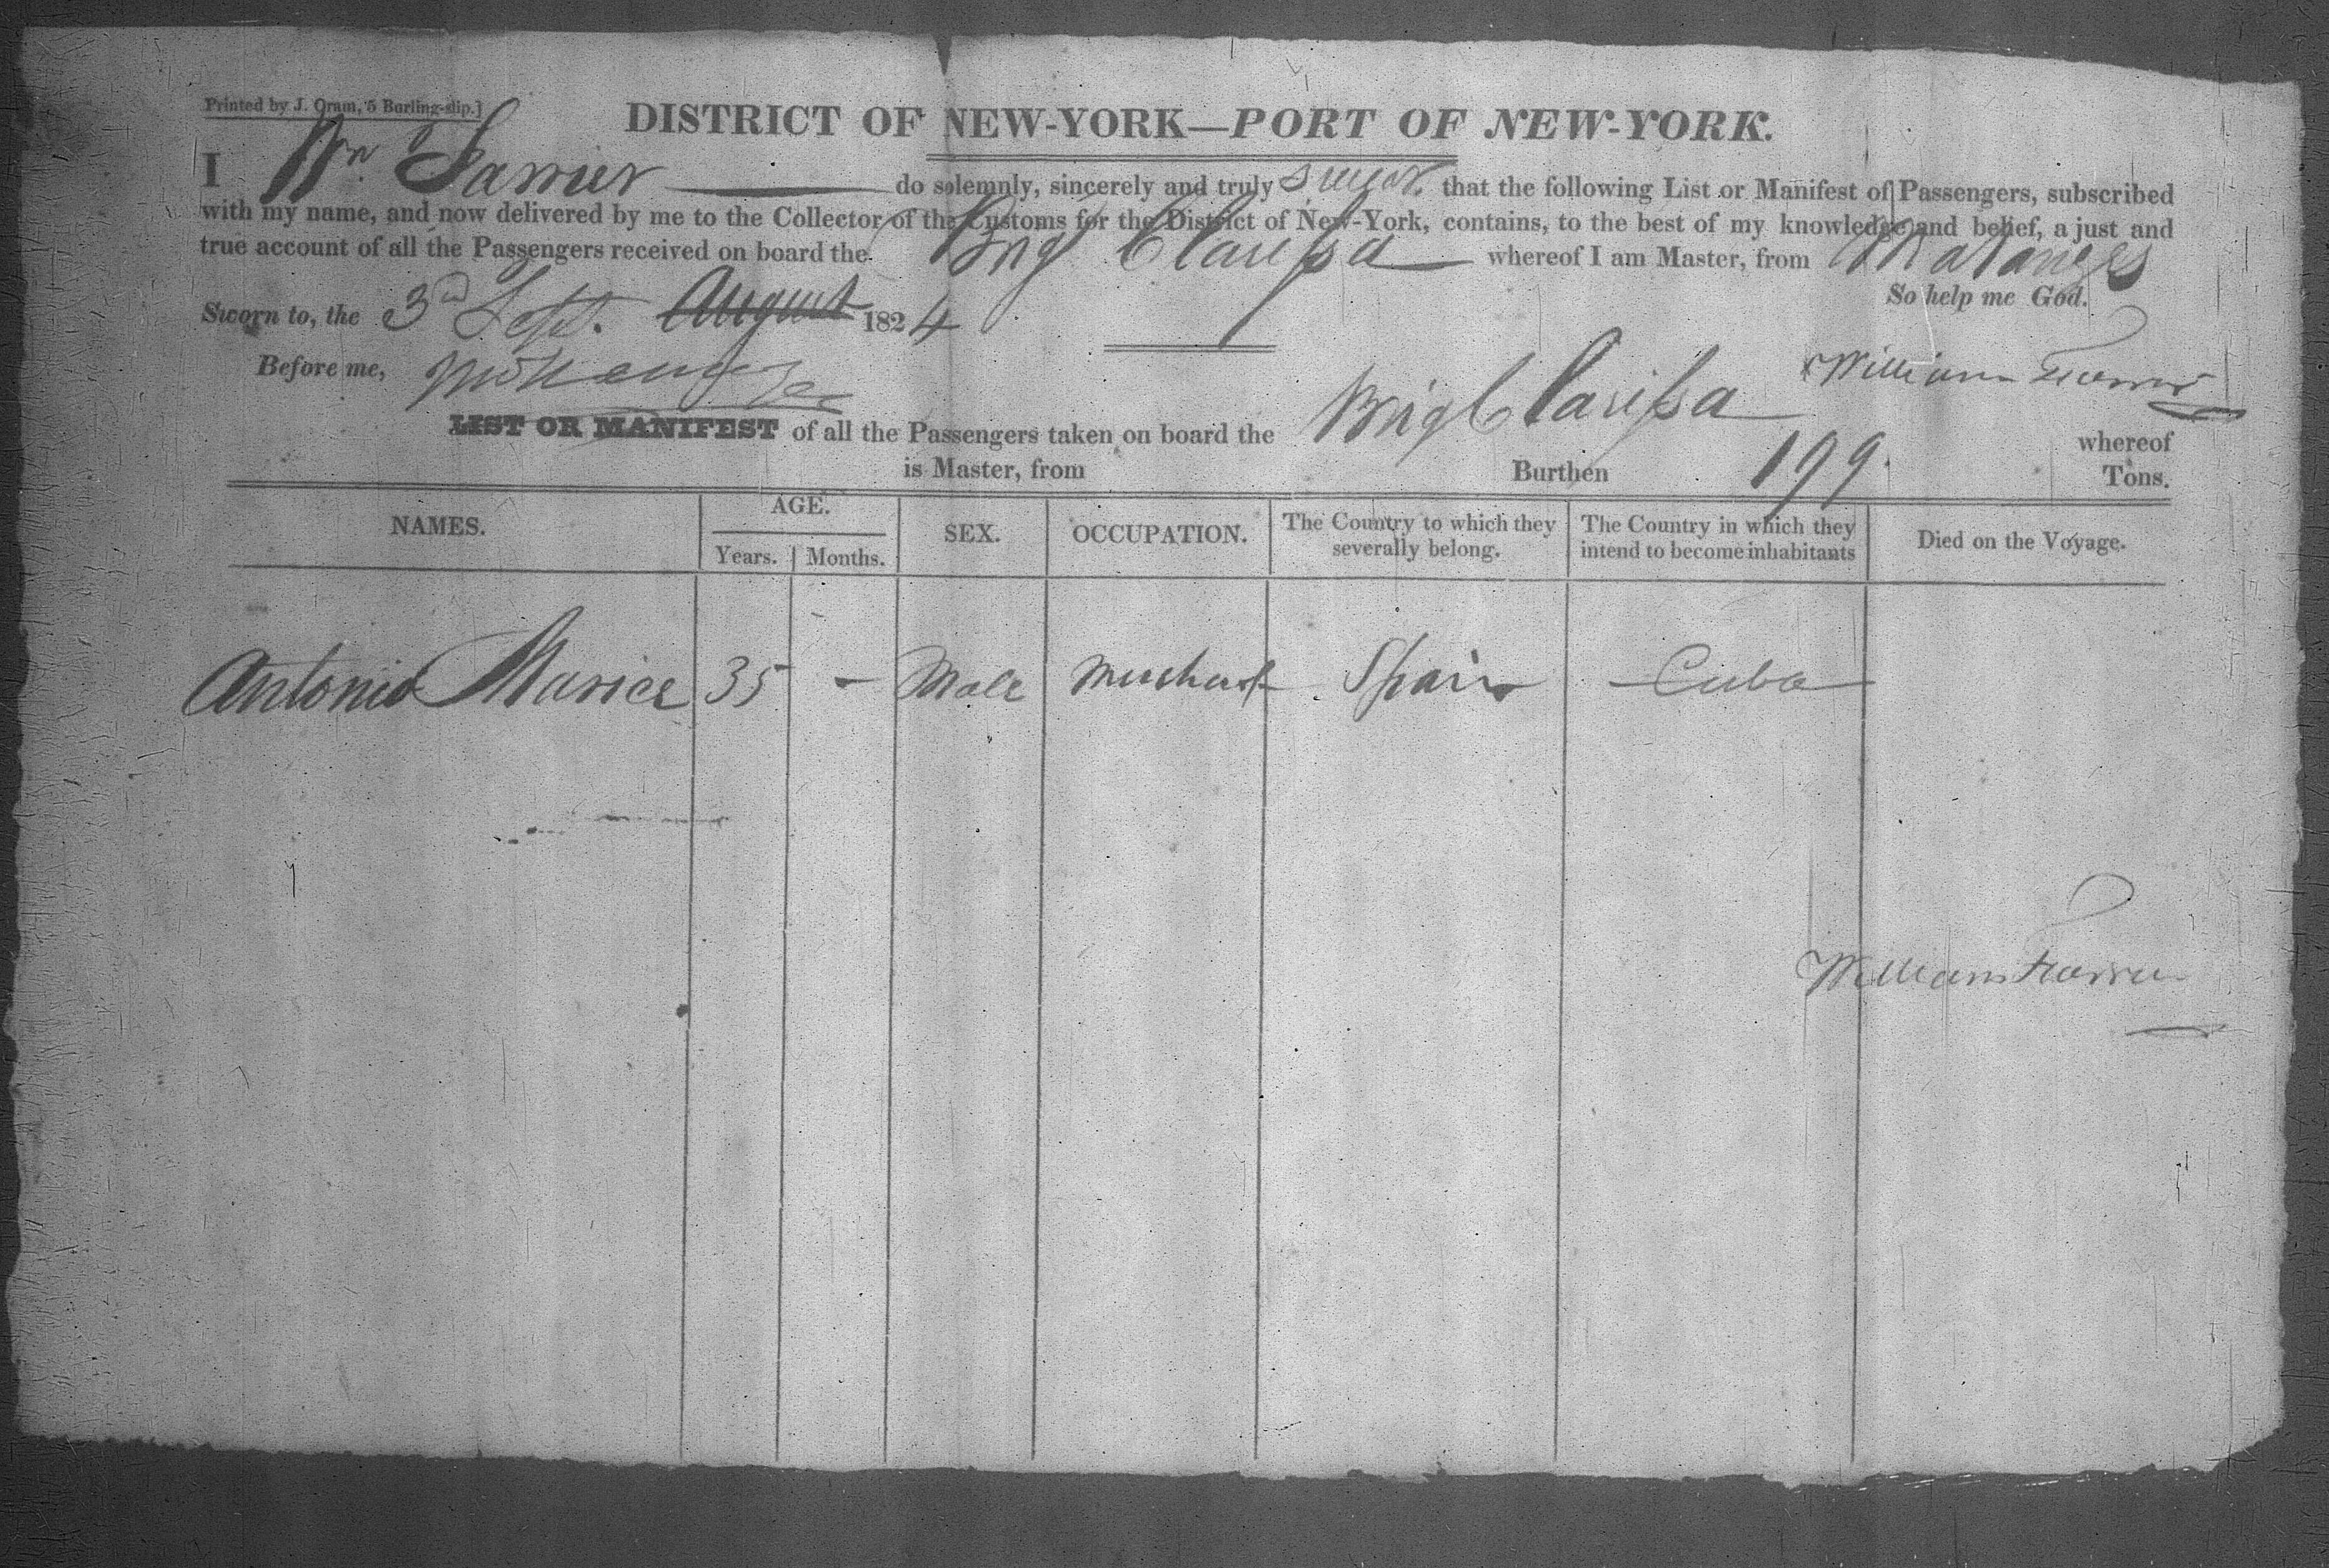 Printed by J. Oram, 5 Burling-slip.]
DISTRICT OF NEW-YORK—PORT OF NEW-YORK.
I Wm. Farrier do solemnly, sincerely and truly swear that the following List or Manifest of Passengers, subscribed
with my name, and now delivered by me to the Collector of the Customs for the District of New-York, contains, to the best of my knowledge and belief, a just and
true account of all the Passengers received on board the Brig Clarissa whereof I am Master, from Matanzes
So help me God.
Sworn to, the 3rd Sept. August 1824
Before me,
William
LIST OR MANIFEST of all the Passengers taken on board the Brig Clarissa whereof
is Master, from Burthen 199 Tons.
NAMES. AGE. SEX. OCCUPATION. The Country to which they severally belong. The Country in which they intend to become inhabitants Died on the Voyage.
Years. Months.
Antonio 35 - Male Merchant Spain Cuba
William